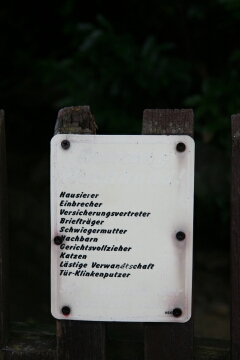 Hausierer
Einbrecher
Versicherungsvertreter
Briefträger
Schwiegermutter
Nachbarn
Gerichtsvollzieher
Katzen
Lästige Verwandtschaft
Tür-Klinkenputzer